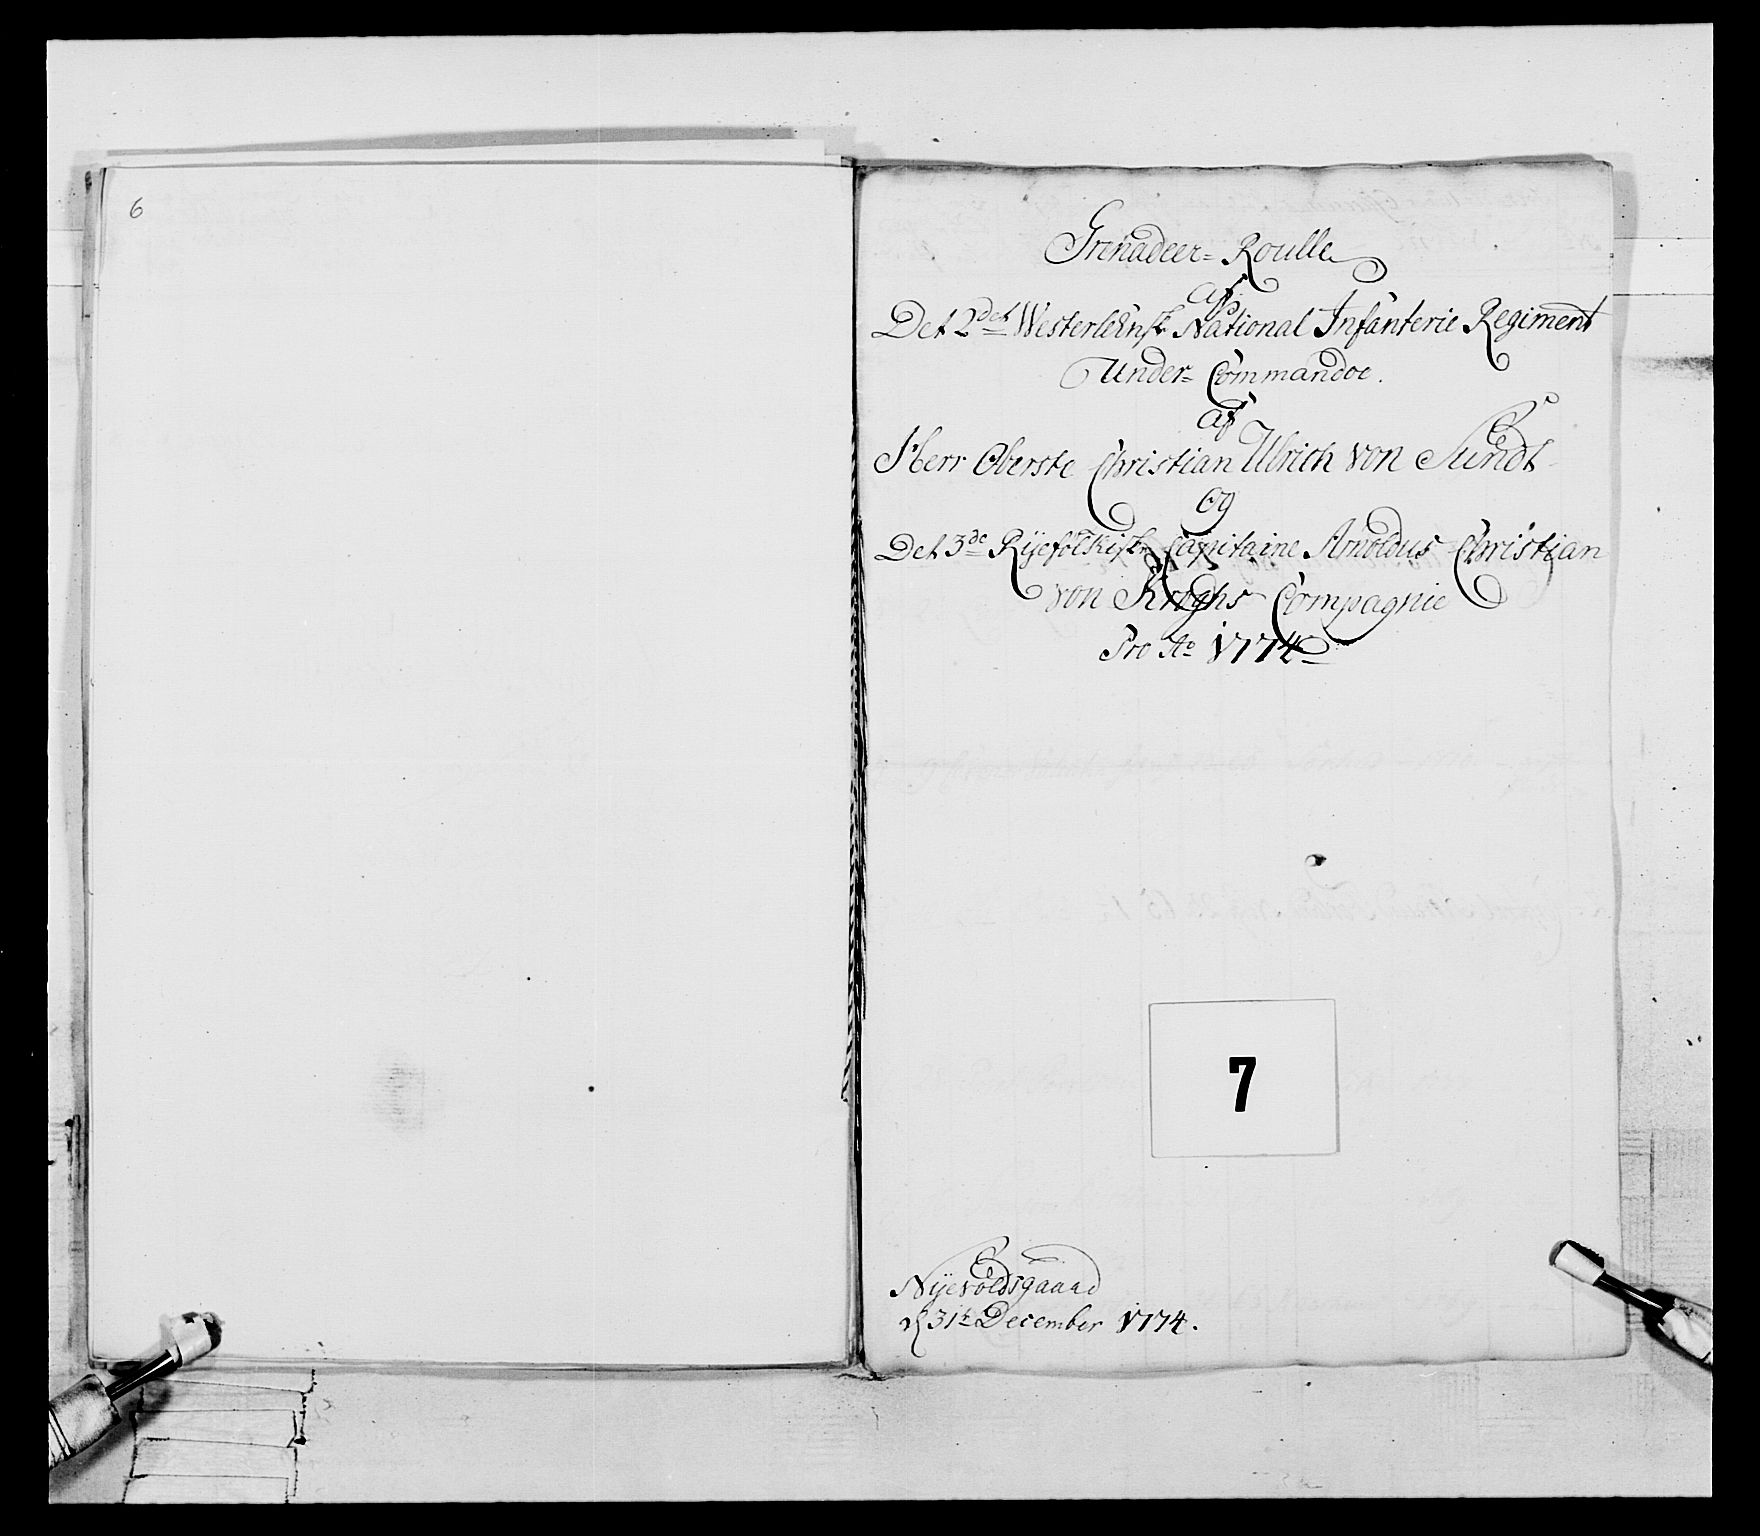 6
Grenadeer= Roulle
af
Det 2det Westerlehnsk National Infanterie Regiment
Under= Commandoe.
af
Herr Oberste Christian Ulrich von Sundt
Og
Det 3de Rÿefölkisk Capitaine Arnoldus Christian
von Kroghs Compagnie
Pro Ao 1774
7
Nÿevoldsgaard
d 31te December 1774.